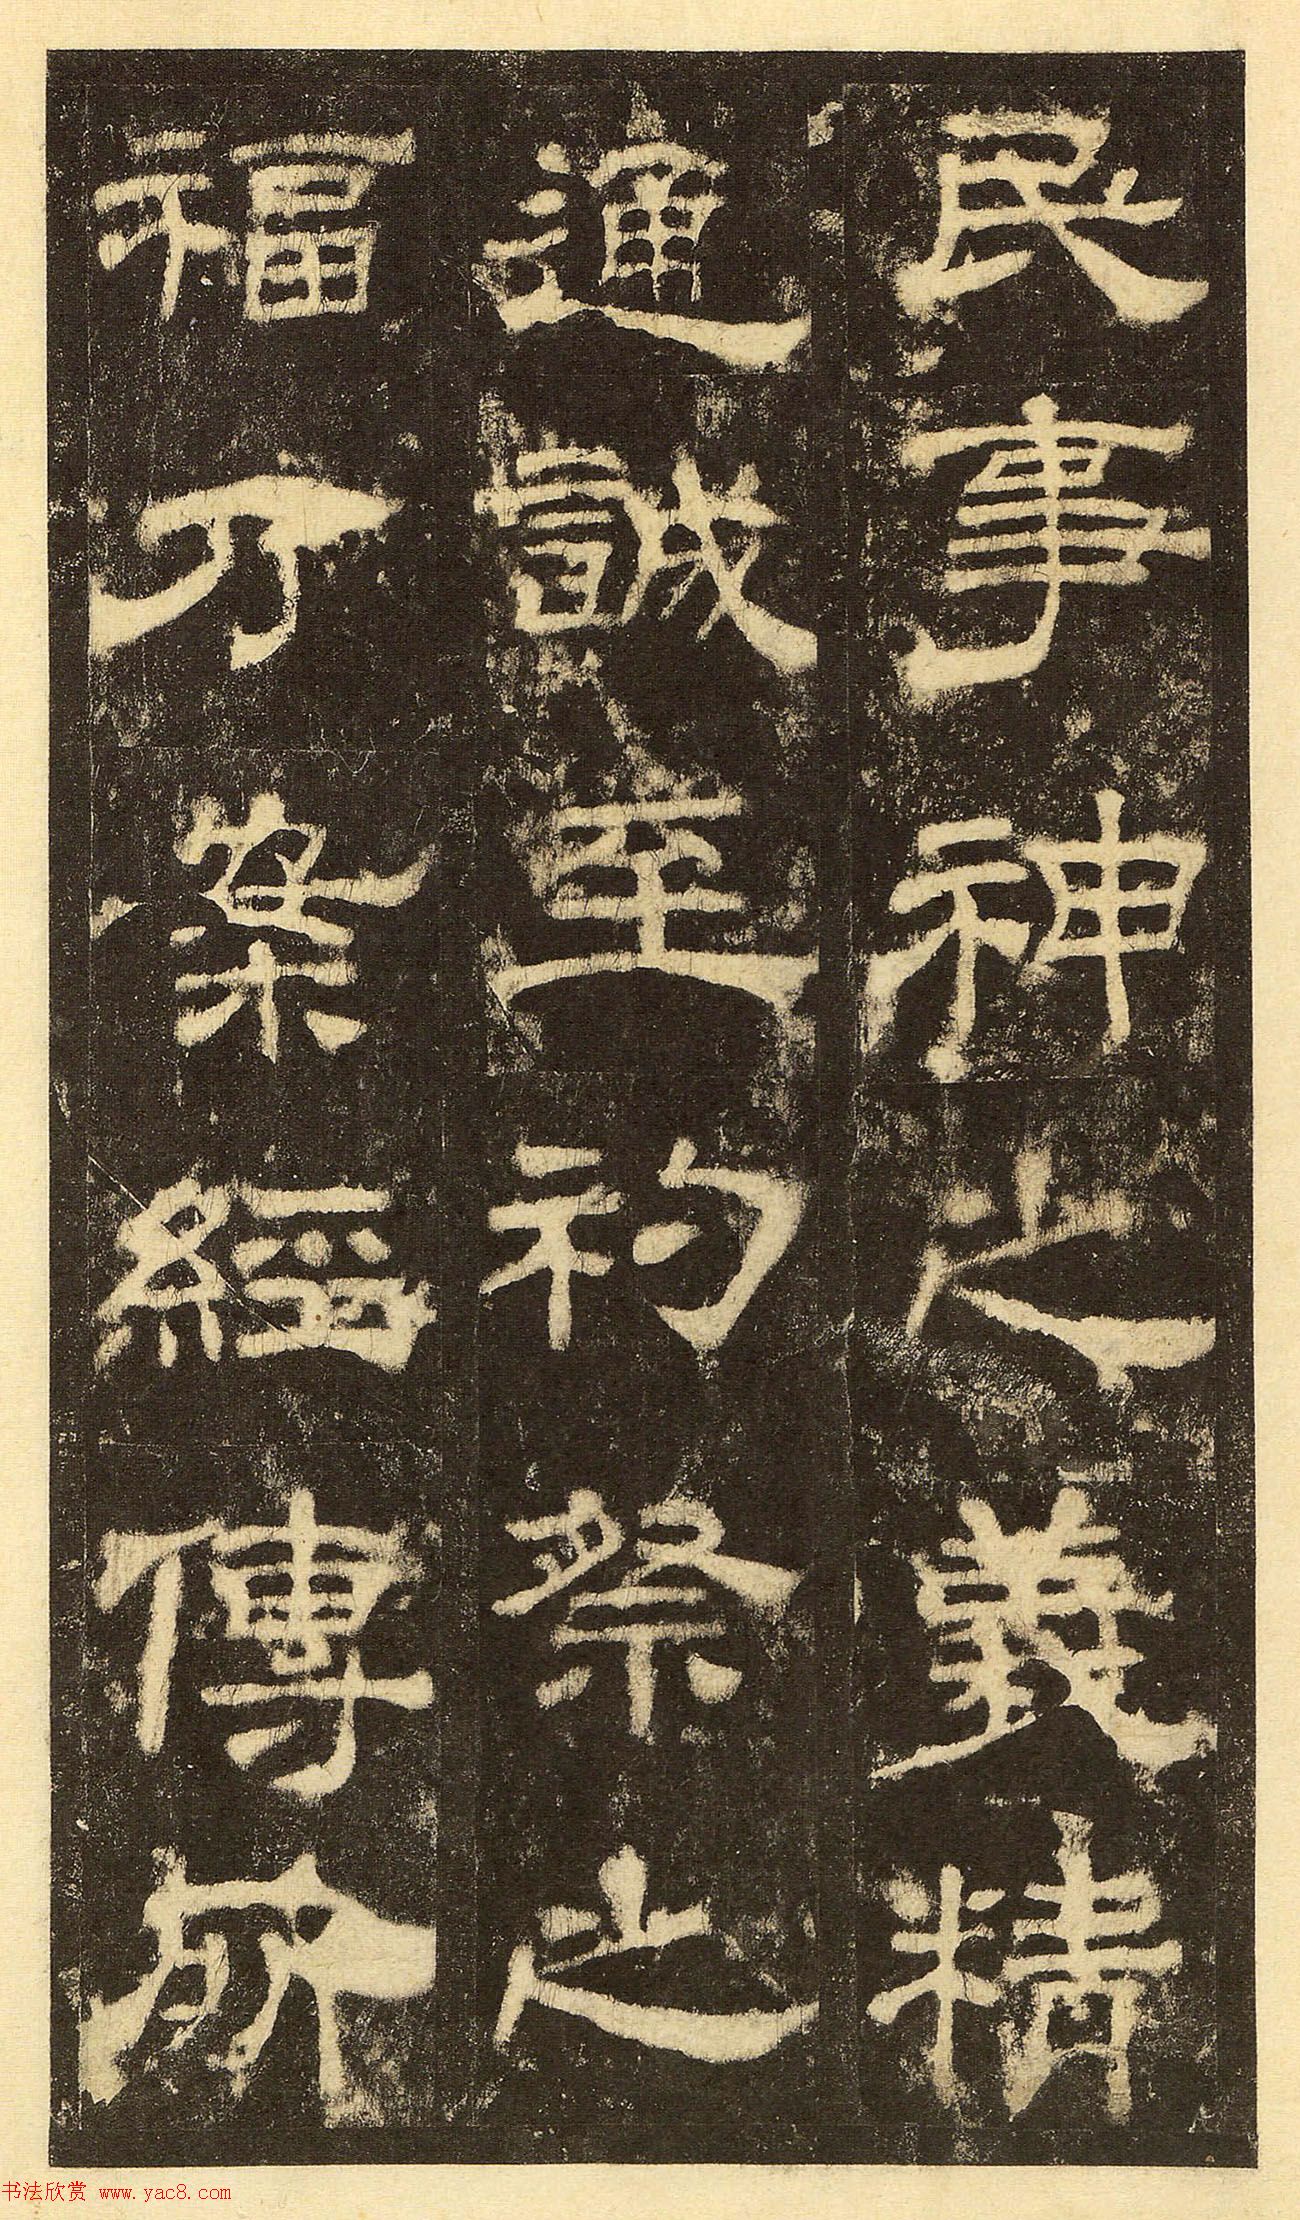 民事神之義精
通誠至礿祭之
福乃案經傳所
书法欣赏 www.yac8.com